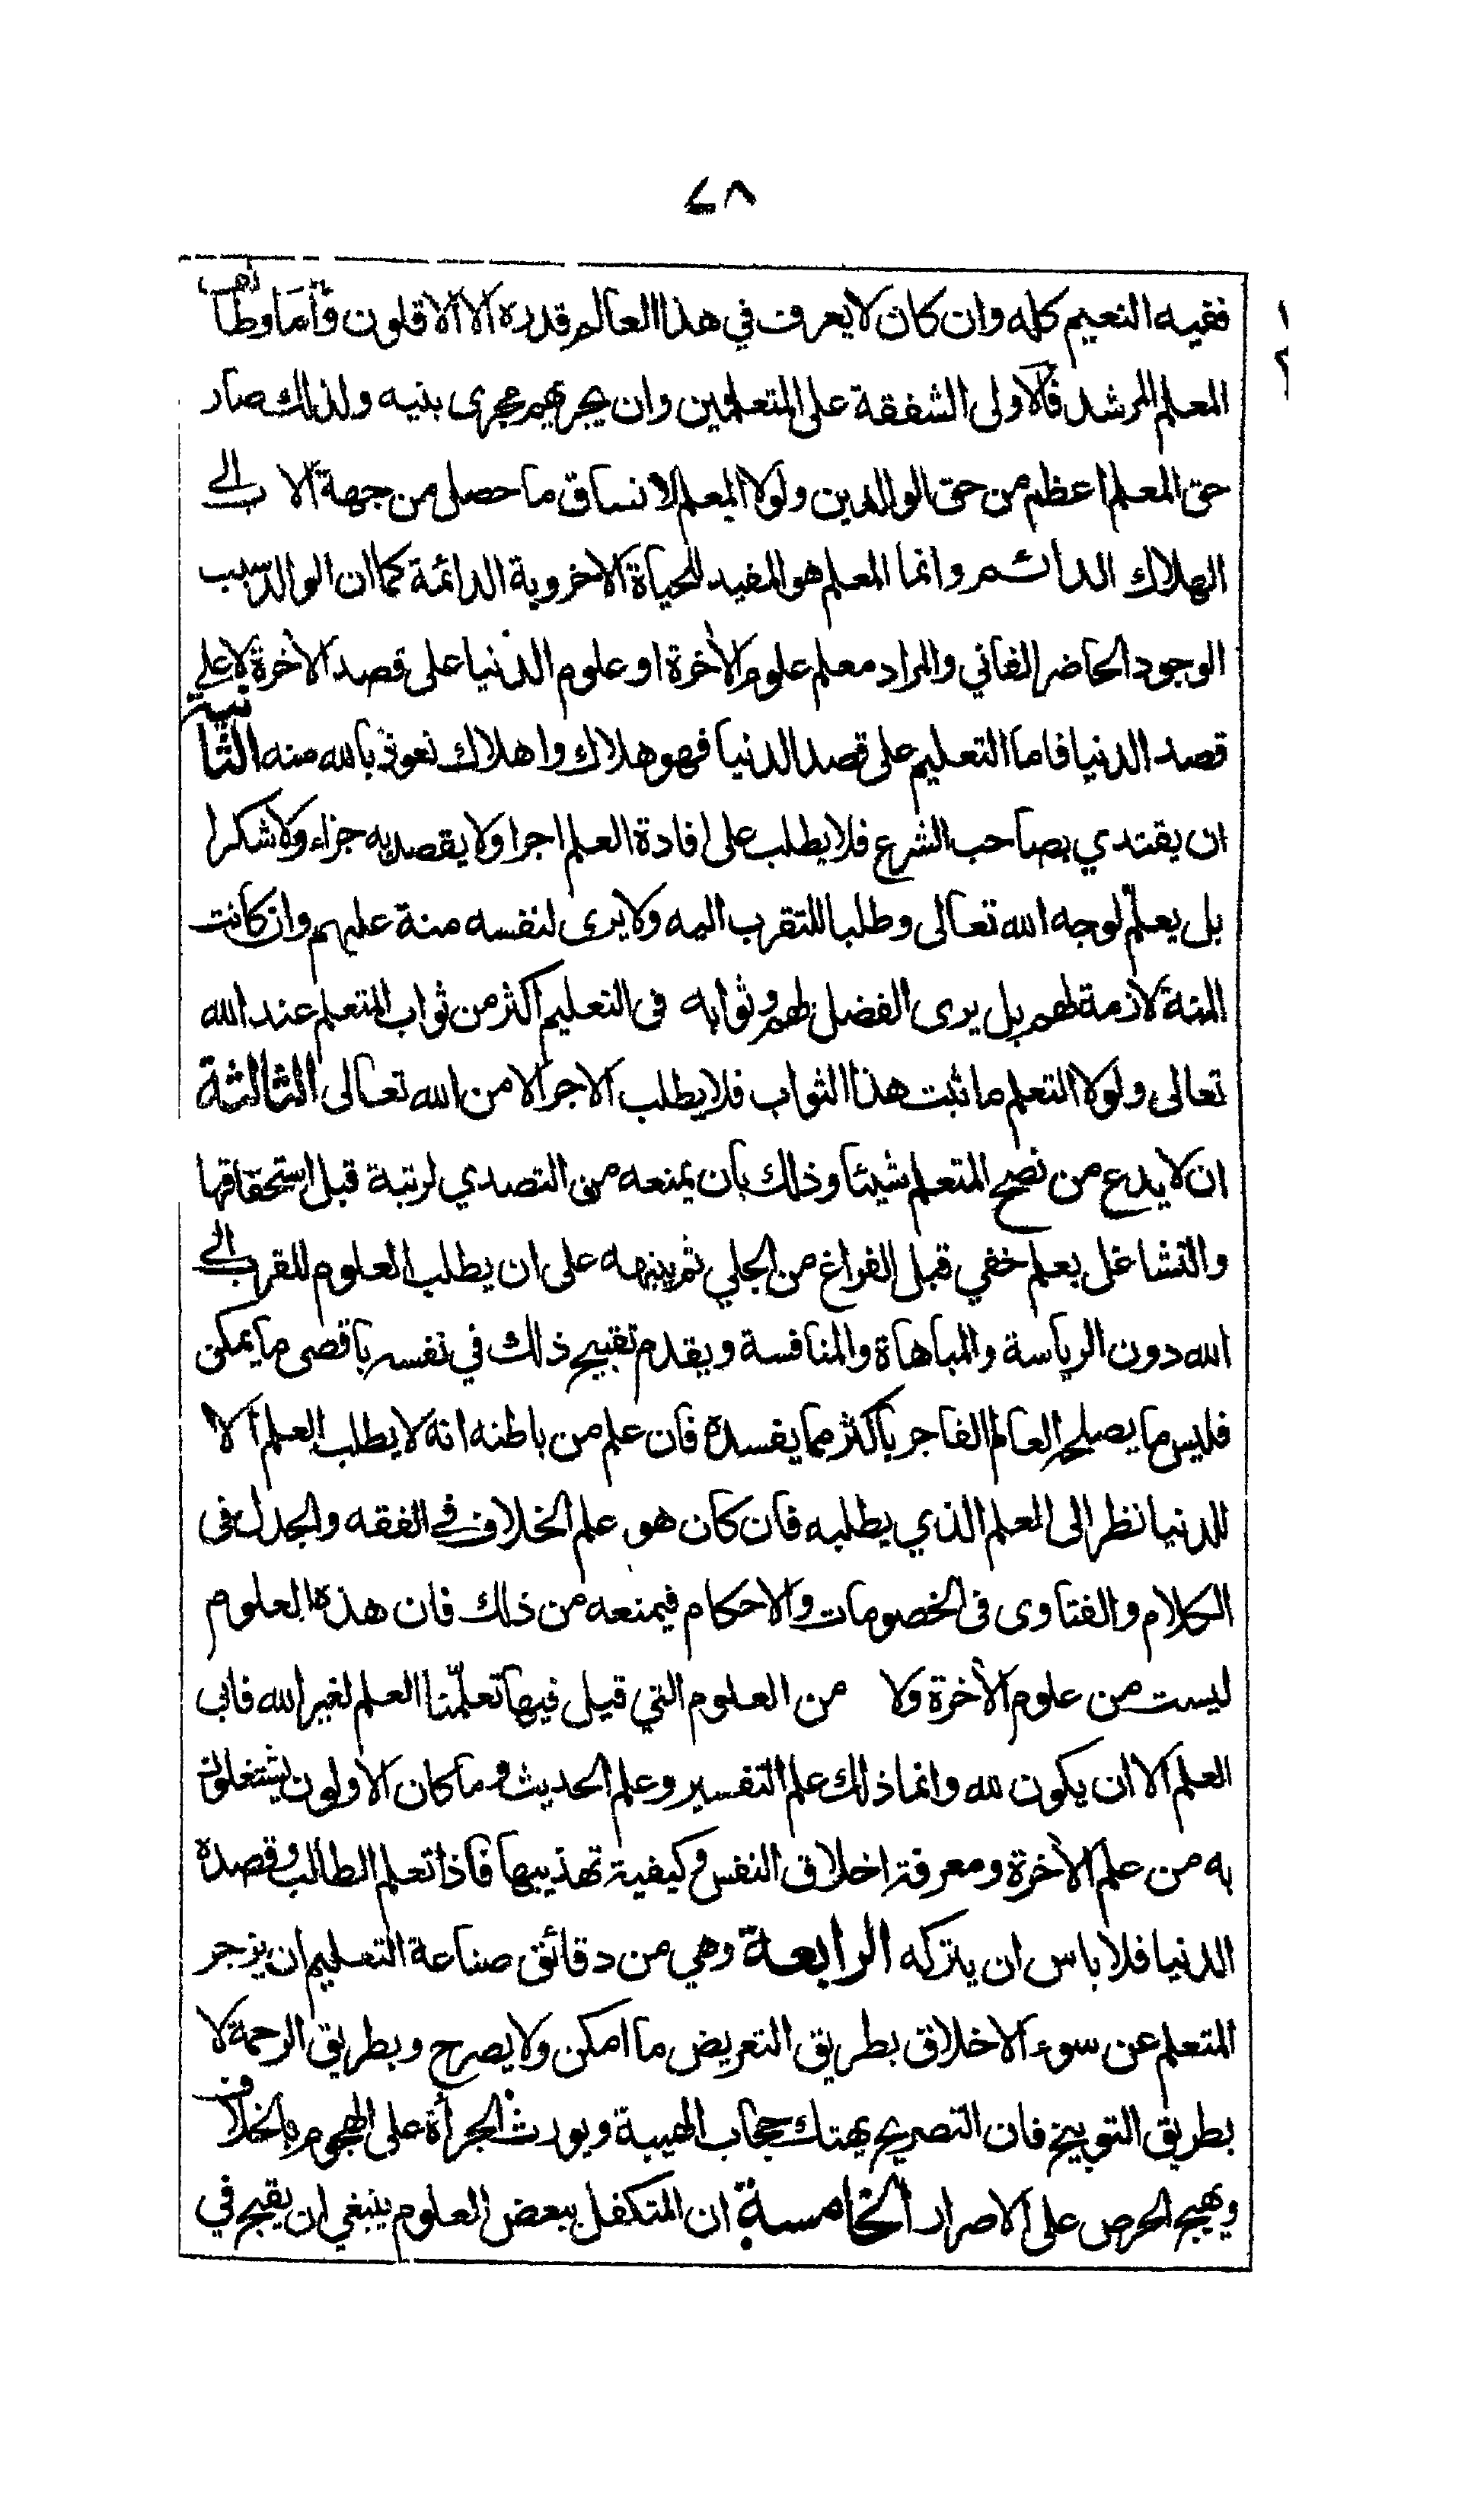 ٤٨
ففيه النعيم كله وان كان لا يعرف في هذا العالم قدره الا الاقلون وأما وظائف
المعلم المرشد فالاولى الشفقة على المتعلمين وان يجريهم مجرى بنيه ولذلك صار
حق المعلم اعظم من حق الوالدين ولولا المعلم لانساق ما حصل من جهة الاب الى
الهلاك الدائم وانما المعلم هو المفيد للحياة الاخروية الدائمة كما ان الوالد سبب
الوجود الحاضر الفاني والمراد معلم علوم الأخرة او علوم الدنيا على قصد الأخرة لا على
قصد الدنيا فاما التعليم على قصد الدنيا فهو هلاك واهلاك نعوذ بالله منه الثانية
ان يقتدي بصاحب الشرع فلا يطلب على افادة العلم اجرا ولا يقصد به جزاء ولا شكرا
بل يعلّم لوجه الله تعالى وطلبا للتقرب اليه ولا يرى لنفسه منة عليهم وان كانت
المنة لازمة لهم بل يرى الفضل لهم وثوابه فى التعليم اكثر من ثواب المتعلم عند الله
تعالى ولولا التعلم ما ثبت هذا الثواب فلا يطلب الاجر الا من الله تعالى الثالثة
ان لا يدع من نصح المتعلم شيئا وذلك بان يمنعه من التصدي لرتبة قبل استحقاقها
والتشاغل بعلم خفي قبل الفراغ من الجلي ثم ينبهه على ان يطلب العلوم للقرب الى
الله دون الرياسة والمباهاة والمنافسة ويقدم تقبيح ذلك في نفسه باقصى ما يمكن
فليس ما يصلحه العالم الفاجر باكثر مما يفسده فان علم من باطنه انه لا يطلب العلم الا
للدنيا نظر الى العلم الذي يطلبه فان كان هو علم الخلاف في الفقه والجدل فى
الكلام والفتاوى فى الخصومات والاحكام فيمنعه من ذلك فان هذه العلوم
ليست من علوم الأخرة ولا من العلوم التي قيل فيها تعلّمنا العلم لغير الله فابى
العلم الا ان يكون لله وانما ذلك علم التفسير وعلم الحديث وما كان الاولون يشتغلون
به من علم الأخرة ومعرفة اخلاق النفس وكيفية تهذيبها فاذا تعلم الطالب وقصده
الدنيا فلا باس ان يتركه الرابعة وهي من دقائق صناعة التعليم ان يزجر
المتعلم عن سوء الاخلاق بطريق التعريض ما امكن ولا يصرح وبطريق الرحمة لا
بطريق التوبيخ فان التصريح يهتك حجاب الهيبة ويورث الجرأة على الهجوم بالخلاف
ويهيج الحرص على الاصرار الخامسة ان المتكفل ببعض العلوم ينبغي ان يقبح في